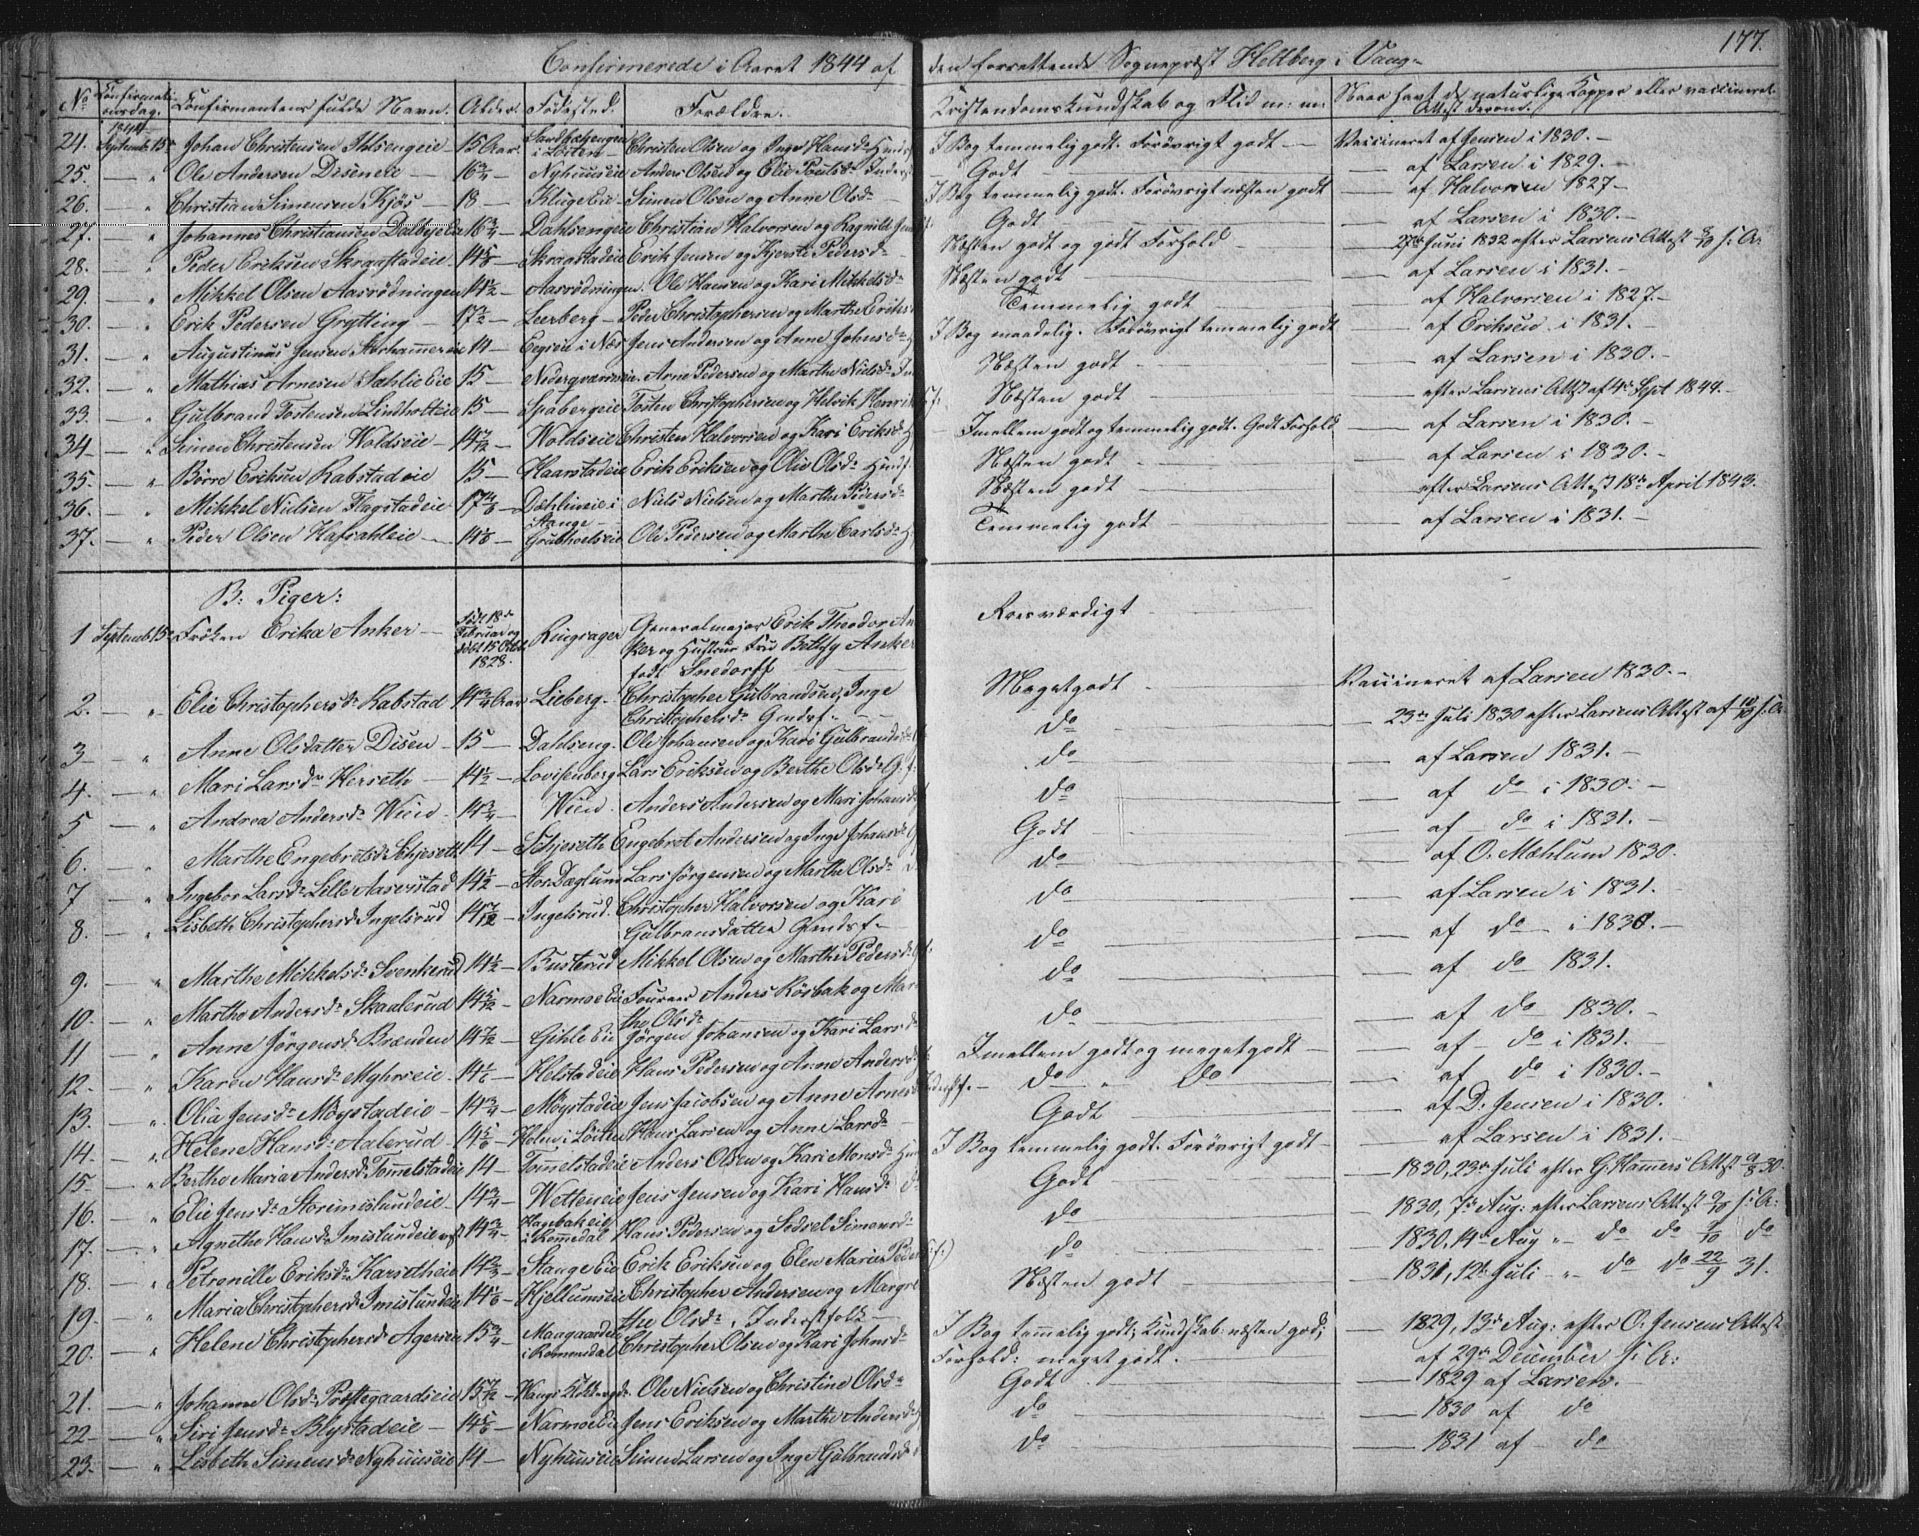 177.
Confirmerede i Aaret 1844 af den forrettende Sognepræst Hellberg i Vang
No Confirmations dag. Confirmantens fulde Navn. Alder. Fødested. Forældre. Kristendomskundskab og Flid m: m: Naar havt de naturlige Kopper eller vaccineret Attest derom.
1844
24. Septemb. 15 Johan Christensen 15 Aar. i Løiten Christen Olsen og Inge Hansd. I Bog temmelig godt. Forøvrigt godt — Vaccineret af Jensen i 1830. —
25. — " Ole Andersen Disen 16 3/4 Nyhuuseie Anders Olsen og Elie Poulsd. Godt — af Larsen i 1829. —
26. — " Christian Simensen Kjös 18 Simen Olsen og Anne Olsd. I Bog temmelig godt. Forøvrigt næsten godt — af Halvorsen 1827 —
27. — " Johannes Christiansen 16 3/4 Dahlsengeie Christian Halvorsen og Ragnild Godt — af Larsen i 1830. —
28. — " Peder Eriksen Skraastadeie Skragstadeie Erik Jensen og Kjersti Pedersd. Næsten godt og godt Forhold — 27de Juni 1832 efter Larsens Attest
29. — " Mikkel Olsen Aasrødningen 14 1/2 Aasrødningen. Ole Hansen og Kari Mikkelsd. Næsten godt — af Larsen i 1831. —
30. — " Erik Pedersen Grytting 17 1/2 Leerberg — Peder Christophersen og Marthe Eriksd. Temmelig godt — af Halvorsen i 1827. —
31. — " Augustinus Jensen Storhammereie Jens Andersen og Anne Johnsd. I Bog maadelig. Forøvrigt temmelig godt — af Eriksen i 1831.
32. — " Mathias Arnesen Sahlie Eie 15 Arne Pedersen og Marthe Nielsd. Næsten godt — af Larsen i 1830. —
33. — " Gulbrand Tostensen Lindholteie 15 — Spabergeie Tosten Christophersen og Helvik Henriksd. Næsten godt — efter Larsens Attest af 4de Sept 1844 —
34 — " Simen Christensen Woldseie — Woldseie Christen Halvorsen og Kari Eriksd. Imellem godt og temmelig godt. Godt Forhold — af Larsen i 1830. —
35. — " Børre Eriksen Rabstadeie 15 — Haarstadeie Erik Eriksen og Olia Olsd. Næsten godt — af Larsen i 1830. —
36. — " Mikkel Nielsen Flagstadeie Dahlineie i Stange — Niels Nielsen og Marthe Pedersd. Næsten godt — efter Larsens Attest 18de April 1843.
37. — " Peder Olsen Hafsahleie — Grubhoelseie Ole Pedersen og Marthe Carlsd. Temmelig godt — af Larsen i 1831. —
B: Piger:
1 Septemb. 15de Frøken Erika Anker — Født 18de Februar og døbt 15 Octbr 1828. Ringsager Generalmajor Erik Theodor Anker og Hustrue Fru Betthy Anker født Snedorff Roesværdigt —
2. — " Elie Christophersd. Rabstad 14 3/4 Aar Lieberg — Christopher Gulbrandsen, Inge Christophersd. Gaardsf. Meget godt — Vaccineret af Larsen 1830. —
3 — " Anne Olsdatter Disen — 15 — Dahlseng. Ole Johansen og Kari Gulbrandsd. do — 23de Juli 1830 efter Larsens Attest af
4. — " Mari Larsd. Herseth — 14 1/2 Lovisenberg Lars Eriksen og Berthe Olsd. G. f. do — af Larsen 1831. —
5 — " Andrea Andersd. Wien 14 3/4 Wien. Anders Andersen og Mari Johansd. do — af do i 1830. —
6. — " Marthe Engebretsd. Schjeseth 14 — Schjeseth Engebret Andersen og Inge Johansd. Godt — af — do i 1831. —
7 — " Ingebor Larsd. Lille Aaserstad 14 1/2 Stor Dæglum Lars Jørgensen og Marthe Olsd. do — af O. Mohlum 1830.
8. — " Lisbeth Christophersd. Ingelsrud 14 7/12 Ingelsrud. Christopher Halvorsen og Kari Gulbransdatter Gaardsf. — do — af Larsen i 1831. —
9. — " Marthe Mikkelsd. Svenkerud 14 1/2 — Busterud Mikkel Olsen og Marthe Pedersd. do — af do — i 1830. —
10. — " Marthe Andersd. Skaalerud Narmo Eie Foureer Anders Rösbak og Marthe Olsd. do — af do 1831.
11 — " Anne Jørgensd. Brænden 14 7/12 — Gihle Eie Jørgen Johansen og Kari Larsd. do — af do 1830. —
12. — " Karen Hansd. Myhrseie — Helstadeie Hans Pedersen og Anne Andersd. Imellem godt og meget godt — af — do i 1831. —
13. — " Olia Jensd. Möystadeie — 14 3/4 — Möystadeie Jens Jacobsen og Anne Arnesd. Do " Do — af do i 1830. —
14. — " Helene Hansd. Aalerud Holen i Löiten Hans Larsen og Anne Larsd. Godt — af D. Jensen i 1830.
15 — " Berthe Maria Andersd. Tommelstadeie 14 — Tommelstadeie Anders Olsen og Kari Monsd. I Bog temmelig godt. Forøvrigt godt — af Larsen i 1831.
16. — " Elie Jensd. Storimislundeie 14 3/4 — Wetteneie Jens Jensen og Kari Hansd. Godt — 1830, 23de Juli efter G. Hammers Attest
17. — " Agnethe Hansd. Imislundeie 14 3/4 i Romedal Hans Pedersen og Sidsel Simensd. do — 1830, 7de Aug: efter Larsens Attest
18. — " Petronille Eriksd. Karsetheie Stange Eie Erik Eriksen og Elen Maria Pedersd. do — 1830, 14de Aug " do do 7/10 do
19. — " Maria Christophersd. Imislundeie Hjellumseie Christopher Andersen og Margrethe Olsd., Inderstfolk — Næsten godt — 1831, 12te Juli — " do do 22/9 31.
20. — " Helene Christophersd. Agerseie 15 3/4 Maagaardeie i Rommedal Christopher Olsen og Kari Johnsd. I Bog temmelig godt, Kundskab: næsten god, Forhold: meget godt. — 1829, 13de Aug: efter O. Jensens Attest af 29de December s: A:
21. — " Johanne Olsd. Præstegaardseie 15 7/12 Ole Nielsen og Christine Olsd. Godt — 1829 af Larsen.
22 — " Siri Jensd. Blystadeie — Narmoeie Jens Eriksen og Marthe Andersd. do — 1830 af do
23. — " Lisbeth Simensd. Nyhuuseie 14 — Nyhuuseie Simen Larsen og Inge Gulbrandsd. do — 1831 af — do